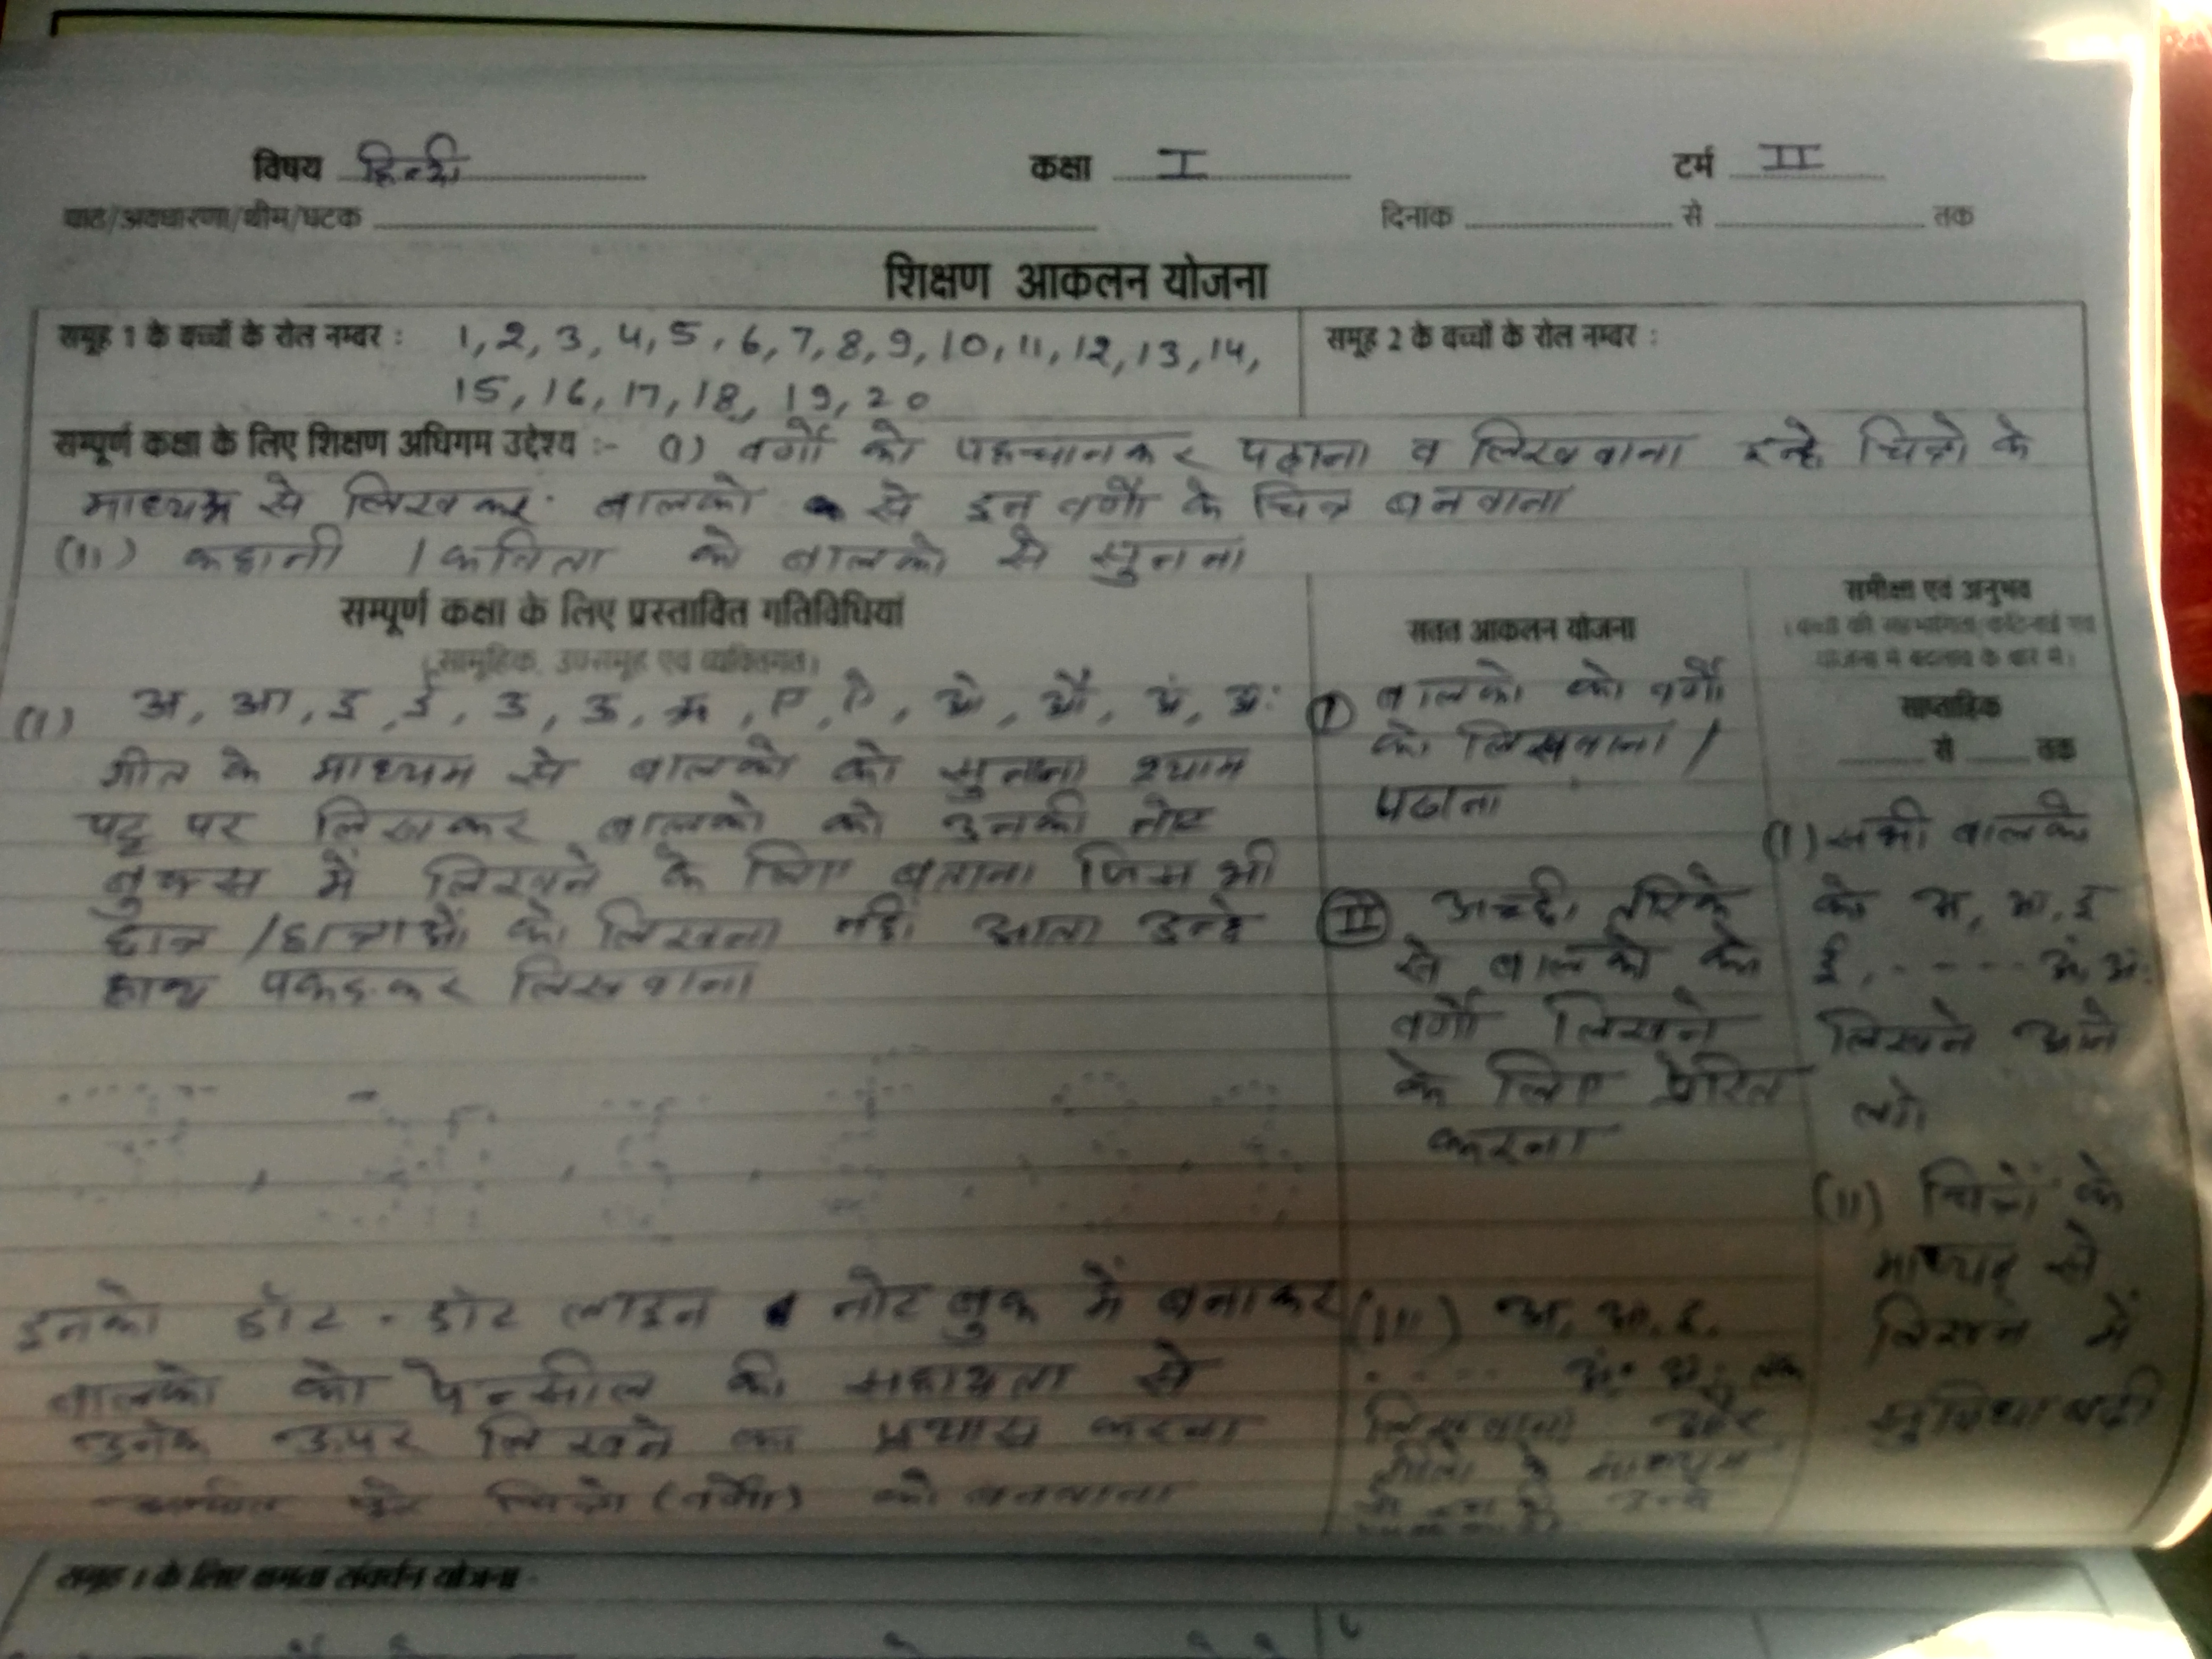 विषय हिन्दी कक्षा I टर्म II
पाठ/अवधारणा/थीम/घटक दिनांक से तक
शिक्षण आकलन योजना
समूह 1 के बच्चों के रोल नम्बर : 1, 2, 3, 4, 5, 6, 7, 8, 9, 10, 11, 12, 13, 14,
15, 16, 17, 18, 19, 20
समूह 2 के बच्चों के रोल नम्बर :
सम्पूर्ण कक्षा के लिए शिक्षण अधिगम उद्देश्य :- (i) वर्णो को पहचानकर पढाना व लिखवाना इन्हे चित्रो के
माध्यम से लिखकर बालको से इन वर्णो के चित्र बनवाना
(ii) कहानी / कविता को बालको से सुनना
सम्पूर्ण कक्षा के लिए प्रस्तावित गतिविधियां
(सामूहिक, उपसमूह एवं व्यक्तिगत)
(i) अ, आ, इ, ई, उ, ऊ, ऋ, ए, ऐ, ओ, औ, अं, अः
गीत के माध्यम से बालको को सुनाना श्याम
पट्ट पर लिखकर बालको को उनकी नोट
बुक्स में लिखने के लिए बताना जिस भी
छात्र / छात्राओं को लिखना नही आता उन्हे
हाथ पकड़कर लिखवाना
इनको डॉट - डॉट लाइन नोट बुक में बनाकर
बालको को पेन्सील की सहायता से
उनके ऊपर लिखने का प्रयास करना
चित्रो (वर्णो) को बनवाना
सतत आकलन योजना
(I) बालको को वर्णो
को लिखवाना /
पढाना
(II) अच्छी तरिके
से बालको को
वर्णो लिखने
के लिए प्रेरित
करना
(iii) अ, आ, इ,
. . . . . अं, अः तक
लिखवाना और
गीतो के माध्यम
समीक्षा एवं अनुभव
(बच्चों की सहभागिता/कठिनाई एवं
योजना में बदलाव के बारे में)
साप्ताहिक
से तक
(i) सभी बालको
को अ, आ, इ
ई, - - - - - अं, अः
लिखने आने
लगे
(ii) चित्रों के
माध्यम से
लिखने में
सुविधा बढी
समूह 1 के लिए क्षमता संवर्धन योजना -